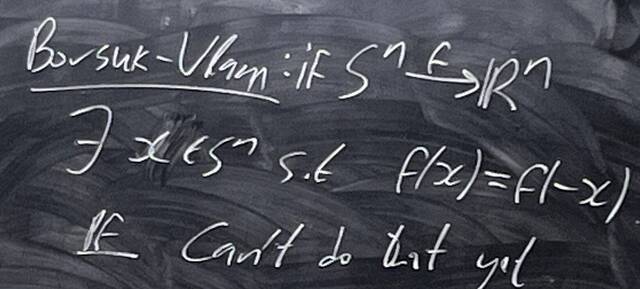 Borsuk-Ulam: if Sⁿ →f ℝⁿ
∃ x ∈ Sⁿ s.t f(x)=f(-x)
Pf Can't do that yet